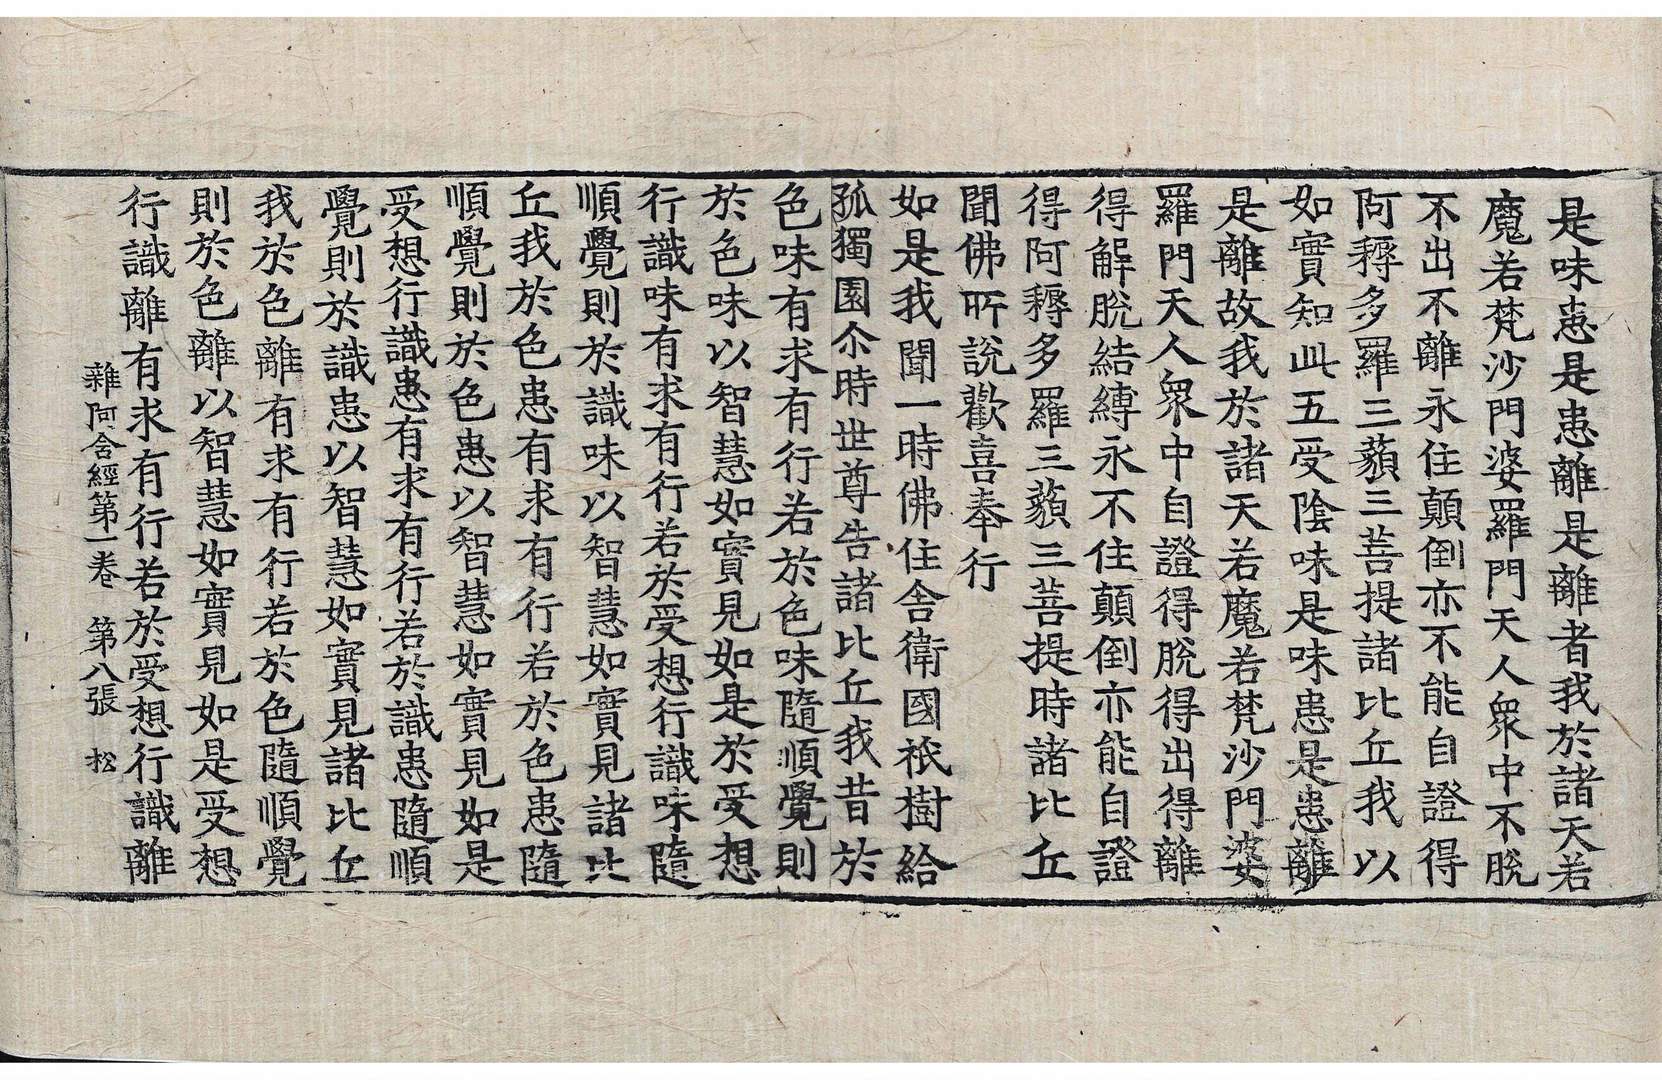 是味患是患離是離者我於諸天若
魔若梵沙門婆羅門天人衆中不脫
不出不離永住顛倒亦不能自證得
阿耨多羅三藐三菩提諸比丘我以
如實知此五受陰味是味患是患離
是離故我於諸天若魔若梵沙門婆
羅門天人衆中自證得脫得出得離
得解脫結縛永不住顛倒亦能自證
得阿耨多羅三藐三菩提時諸比丘
聞佛所說歡喜奉行
如是我聞一時佛住舍衛國祇樹給
孤獨園尒時世尊告諸比丘我昔於
色味有求有行若於色味隨順覺則
於色味以智慧如實見如是於受想
行識味有求有行若於受想行識味隨
順覺則於識味以智慧如實見諸比
丘我於色患有求有行若於色患隨
順覺則於色患以智慧如實見如是
受想行識患有求有行若於識患隨順
覺則於識患以智慧如實見諸比丘
我於色離有求有行若於色隨順覺
則於色離以智慧如實見如是受想
行識離有求有行若於受想行識離
雜阿含經第一卷 第八張 松